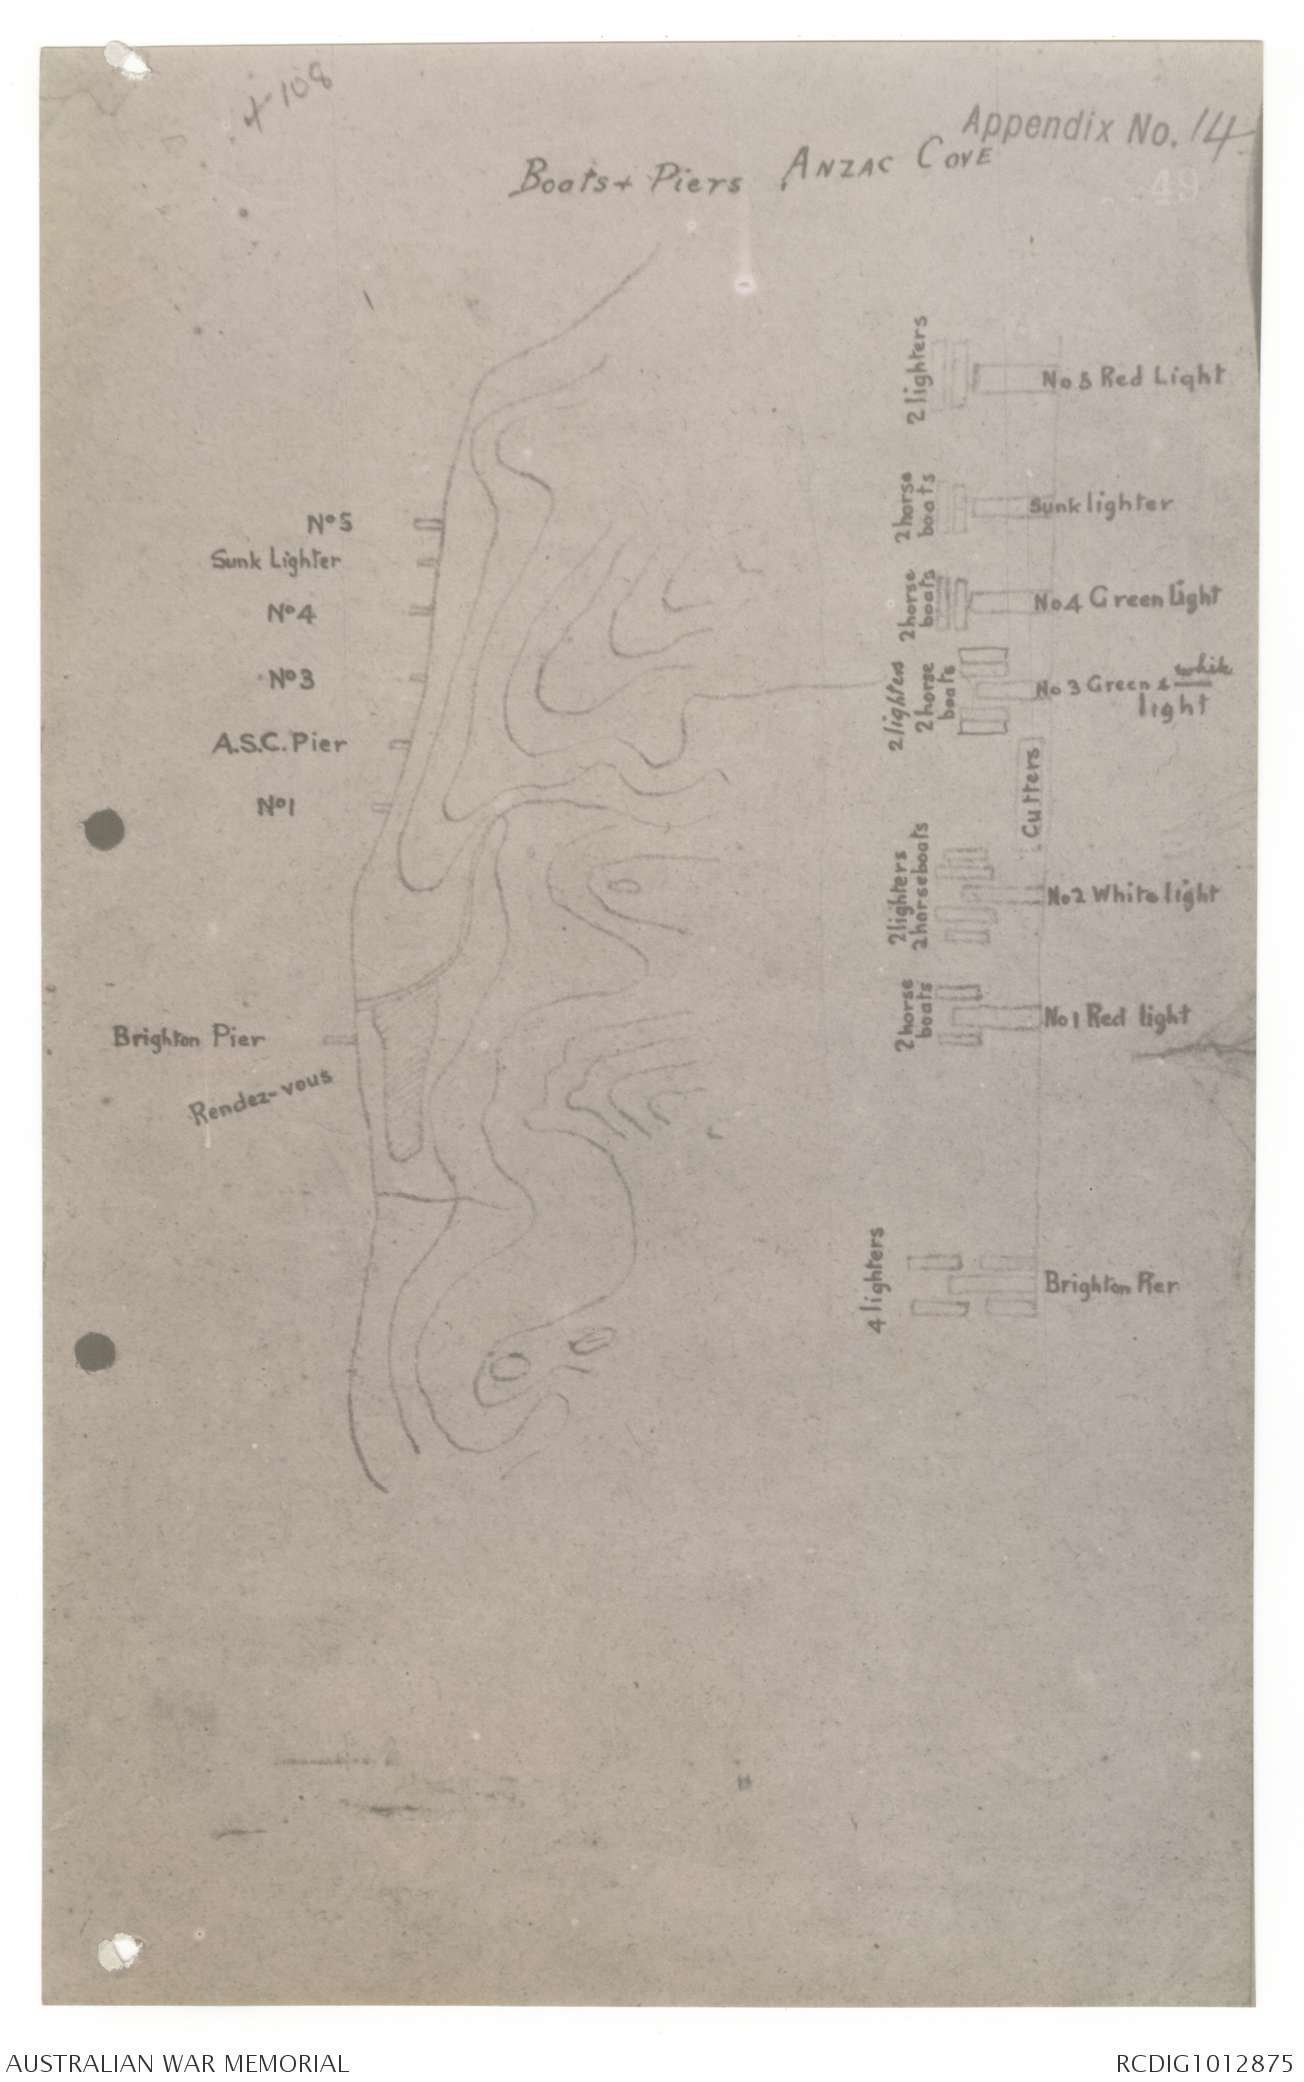 4-108
Appendix No. 14
49
Boats + Piers ANZAC COVE
No 5
Sunk Lighter
No 4
No 3
A.S.C. Pier
No 1
Brighton Pier
Rendez-vous
2 lighters
No 5 Red Light
2 horse
boats
Sunk lighter
2 horse
boats
No 4 Green Light
2 lighters
2 horse
boats
No 3 Green & white
light
Cutters
2 lighters
2 horseboats
No 2 White light
2 horse
boats
No 1 Red light
4 lighters
Brighton Pier
AUSTRALIAN WAR MEMORIAL
RCDIG1012875